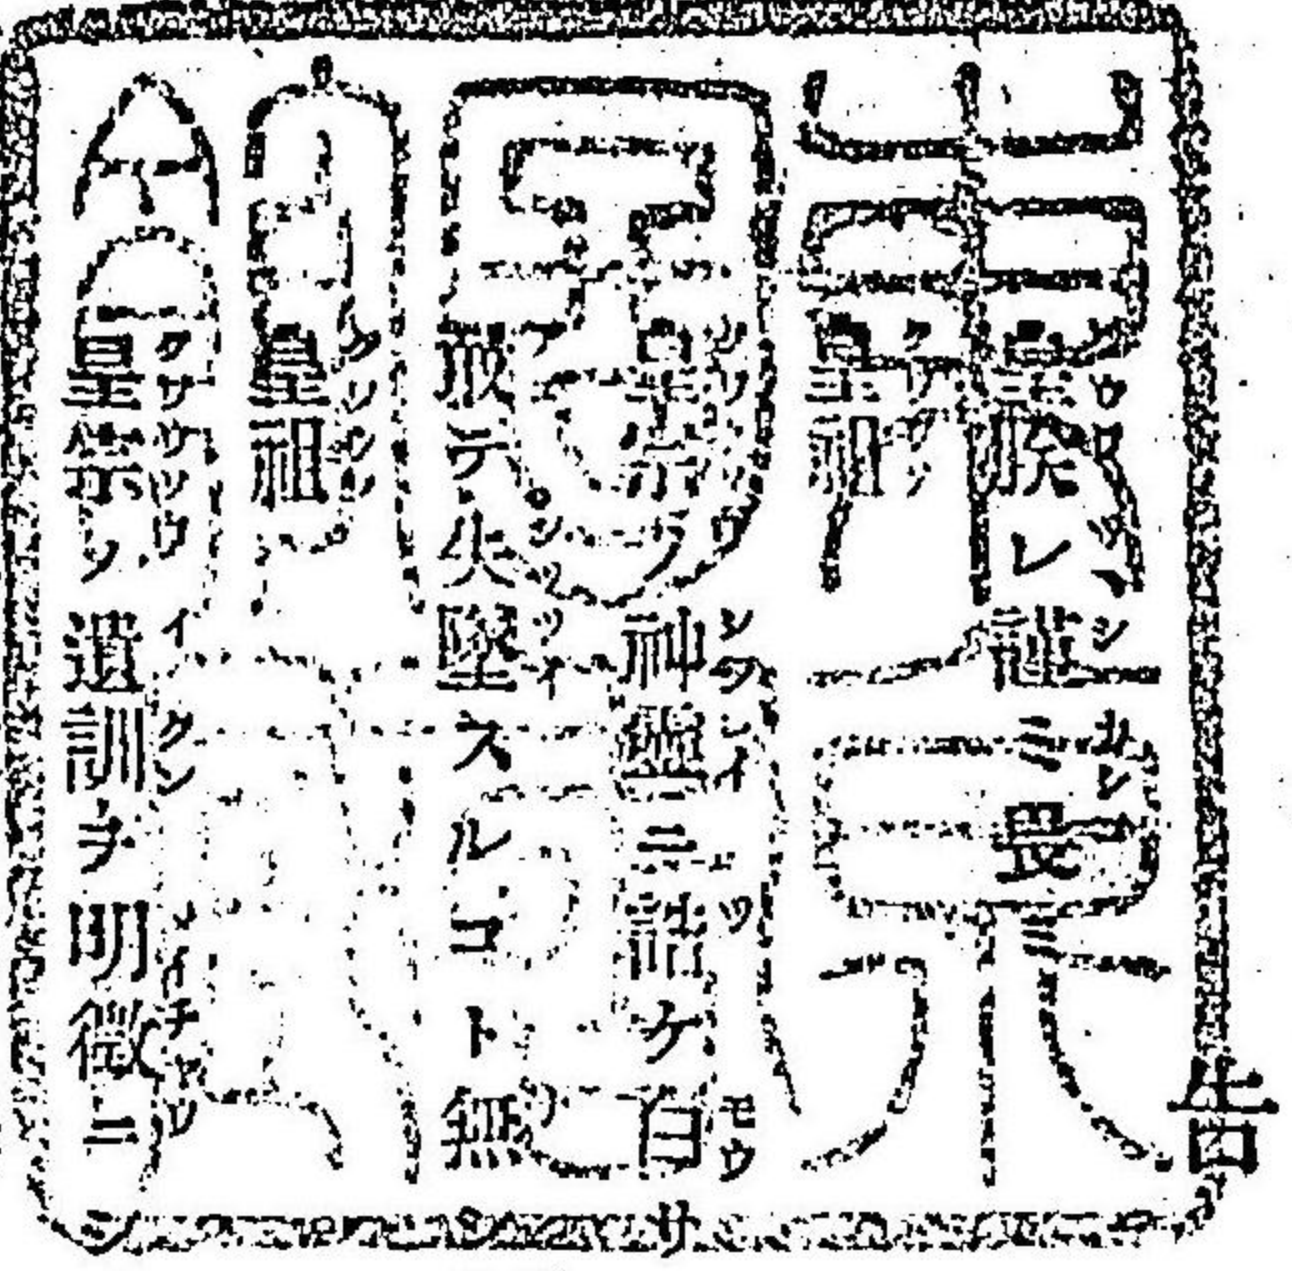 告
皇朕レ謹ミ畏ミ
皇祖
皇宗ノ神靈ニ誥ケ白サ
敢テ失墜スルコト無シ
皇祖
皇宗ノ遺訓ヲ明徴ニシ
東京圖書館藏